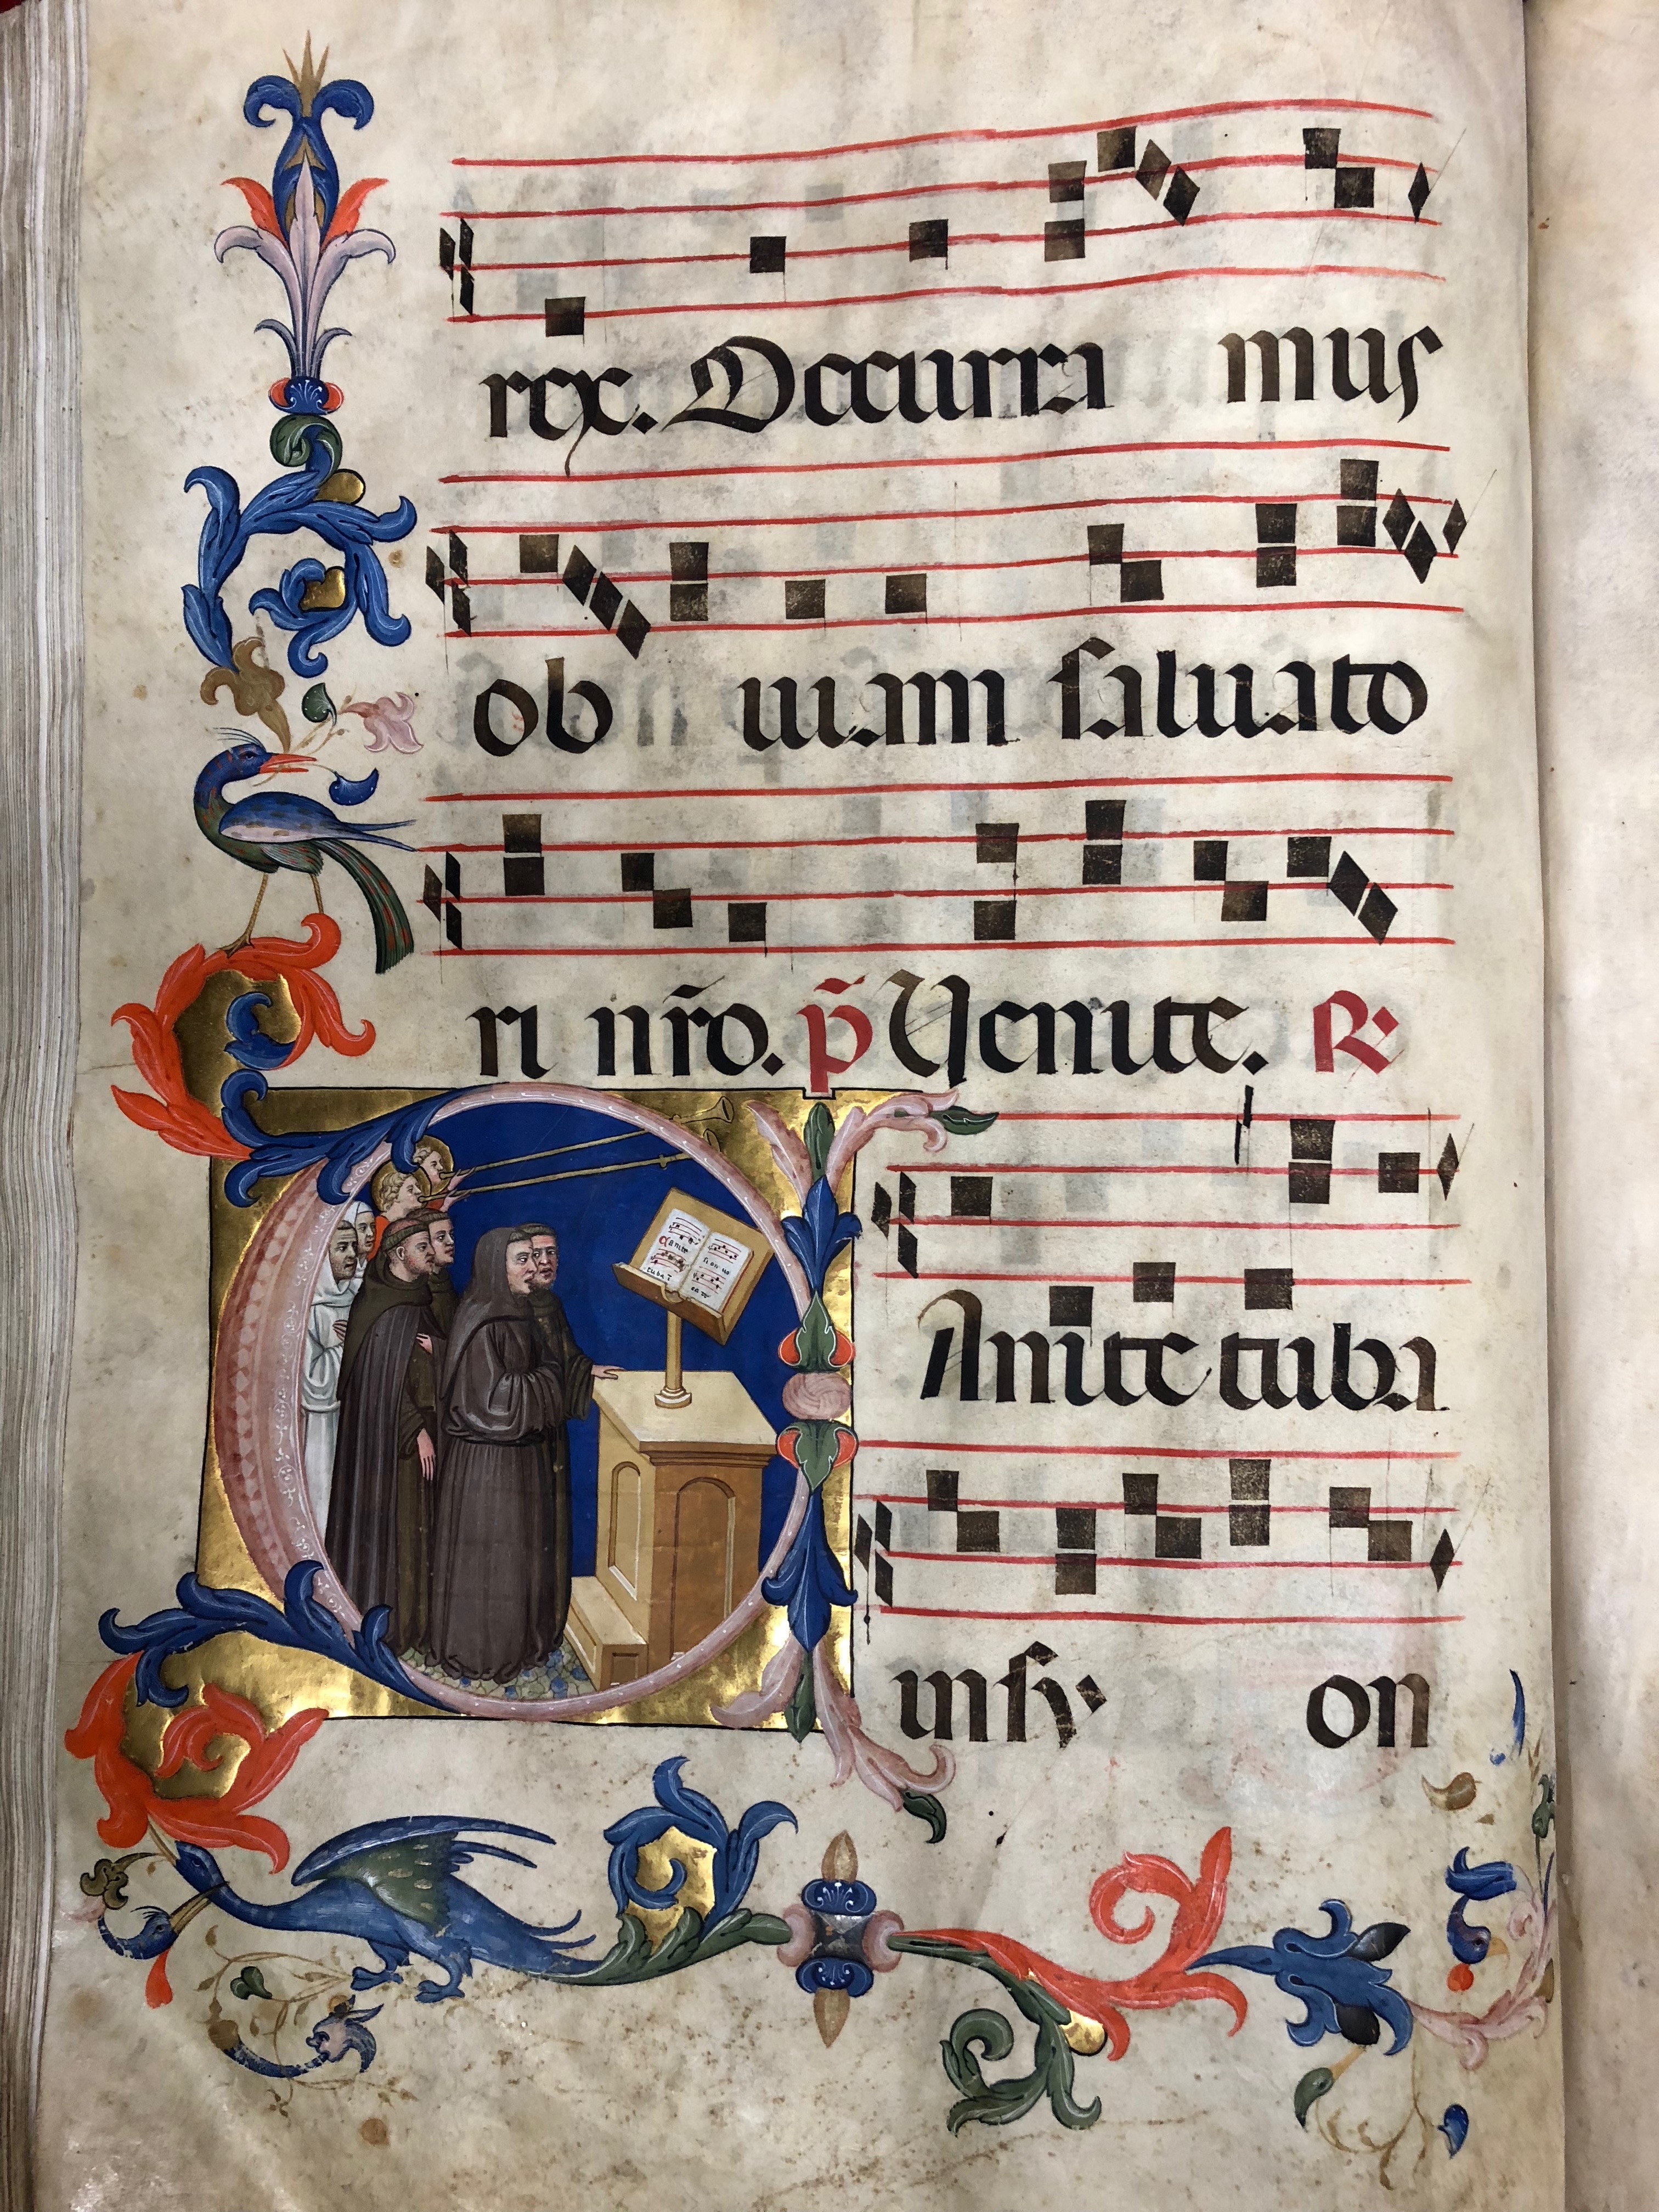 rex. Occurra mus
ob uiam saluato
ri nr̄o. p̄ Uenite. R̷
Anite tuba
in sy on